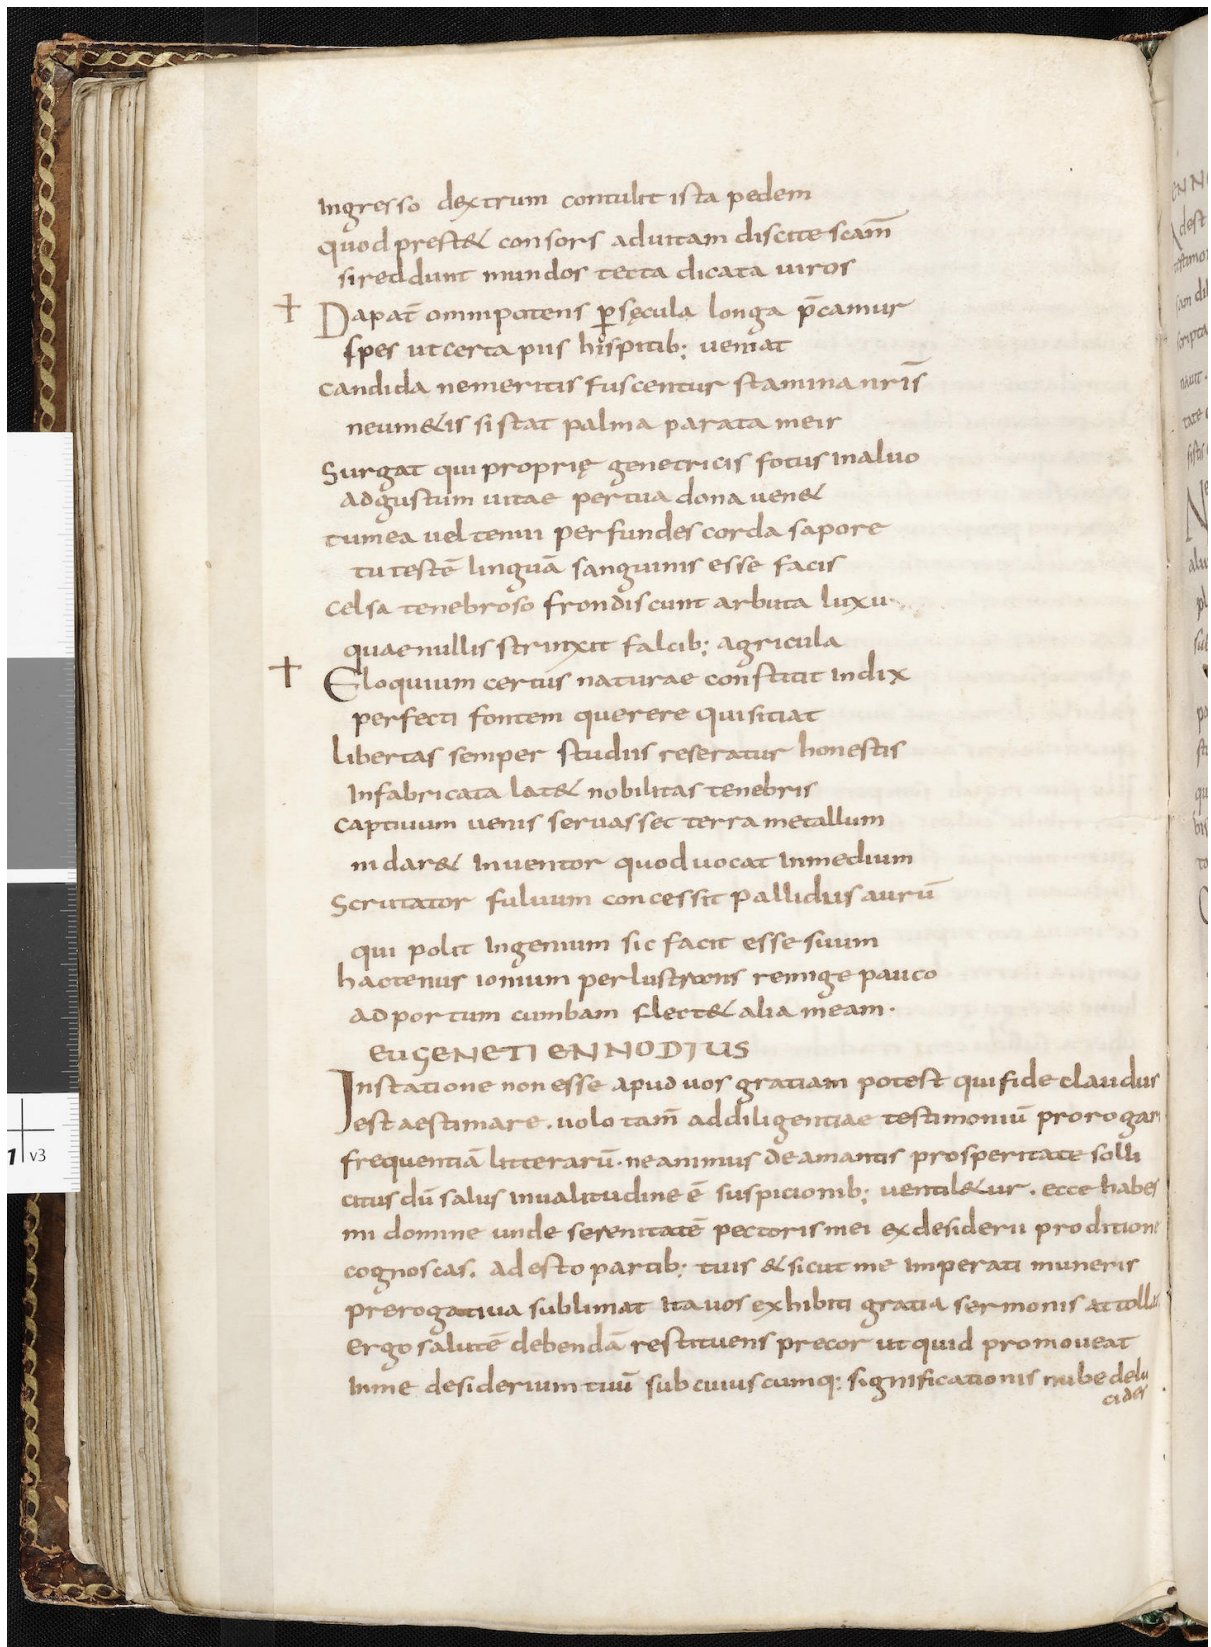 Ingresso dextrum contulit ista pedem
quod prest& consors aduitam discite scam̄
si reddunt mundos tecta dicata uiros
+ Dapat̄ omnipotens p̱sęcula longa p̄camur
spes ut certa pus hispitib; ueniat
candida nemeritis fuscentur stamina nr̄is
neum&is si stat palma parata meis
Surgat qui proprię genetricis fotus inaluo
adgustum uitae pertua dona uen&
tumea uel tenui perfundes corda sapore
tu testē linguā sanguinis esse facis
celsa tenebroso frondiscunt arbuta luxu
quae nullis strinxit falcib; agricula
+ Eloquium certus naturae constitit index
perfecti fontem querere qui sitiat
libertas semper studiis reseratur honestis
Infabricata lat& nobilitas tenebris
captiuum uenis seruasset terra metallum
ni dar& Inuentor quod uocat Inmedium
Scrutator fuluum concessit pallidus aurū
qui polit Ingenium sic facit esse suum
hactenus ionium perlustrans remige pauco
ad portum cumbam flect& alia meam.
EUGENETI ENNODIUS
Instatione non esse apud uos gratiam potest qui fide claudus
est aestimare. uolo tam̄ addiligentiae testimoniū prorogari
frequentiā litterarū. ne animus de amantis prosperitate solli
citus dū salus inualitudine ē suspicionib; uentil&ur. ecce habes
mi domine unde serenitatē pectoris mei exdesiderii proditione
cognoscas. adesto partib; tuis & sicut me imperati muneris
prerogatiua sublimat ita uos exhibiti gratia sermonis attollat
ergo salutē debendā restituens precor ut quid promoueat
Inme desiderium tuū sub cuiuscumq; significationis nube delu
cides
1 v3